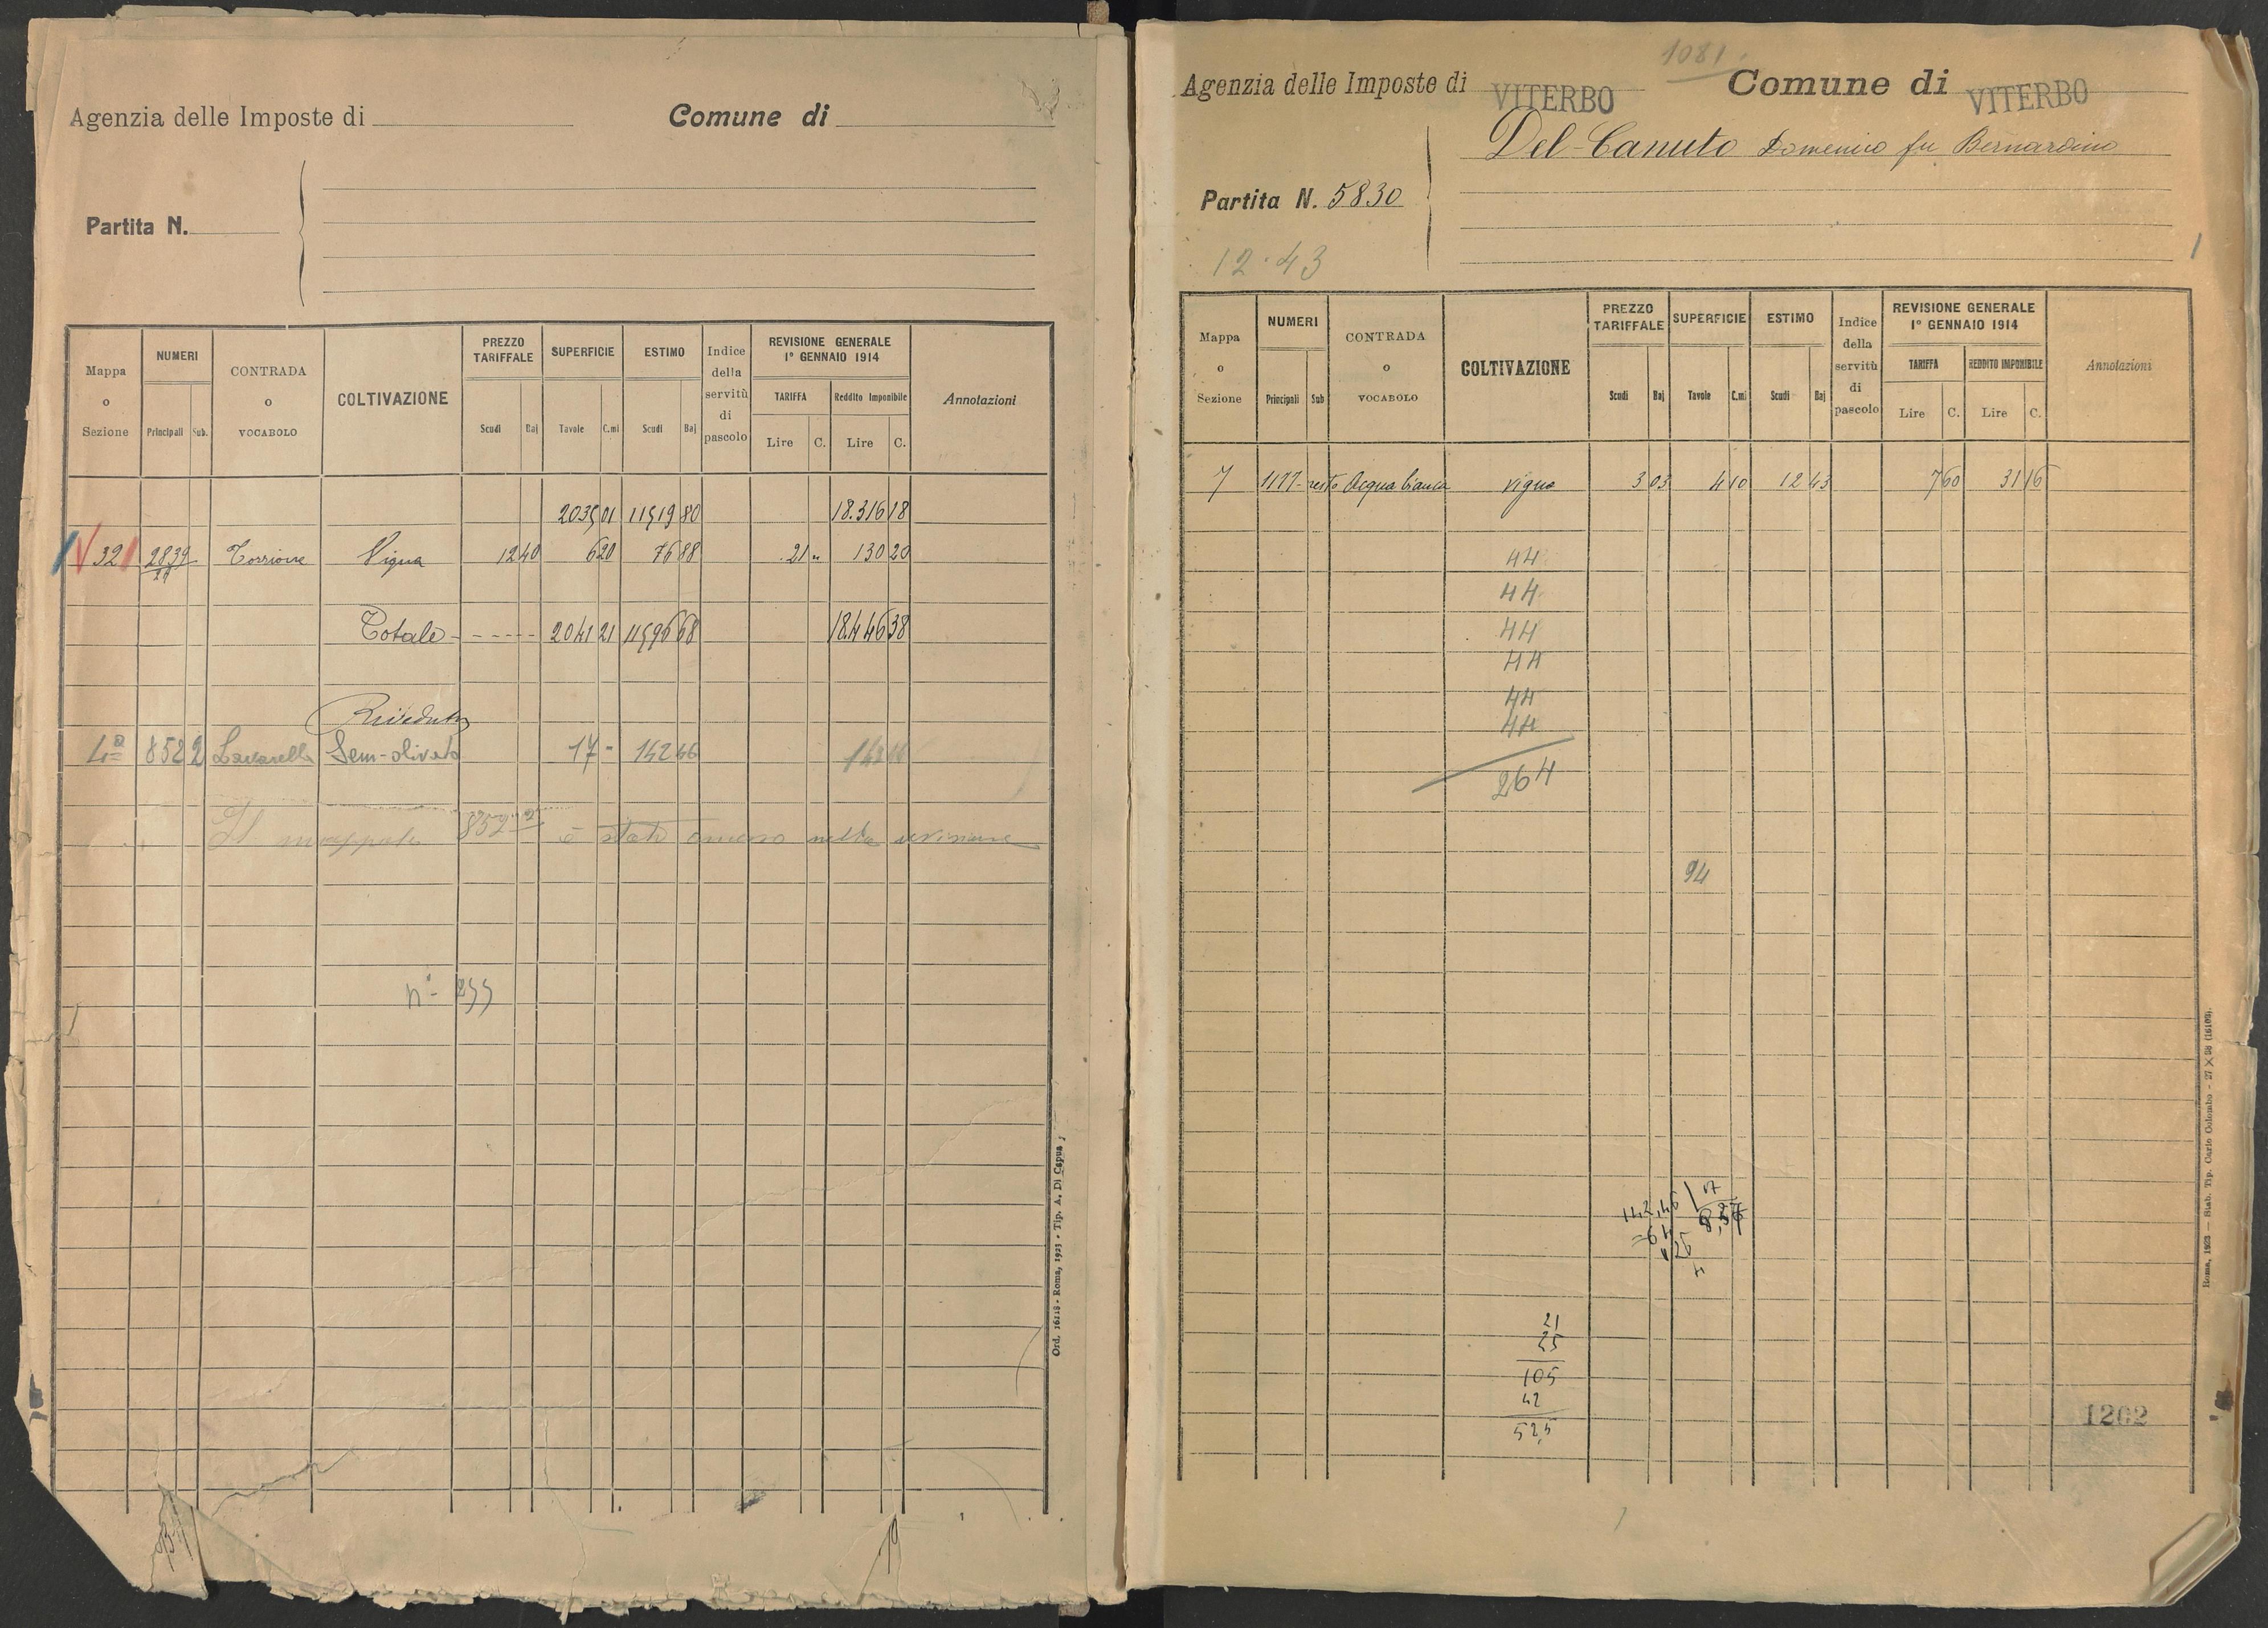 Agenzia delle Imposte di
Comune di
Partita N.
Mappa o Sezione
NUMERI
Principali
Sub.
CONTRADA o VOCABOLO
COLTIVAZIONE
PREZZO TARIFFALE
Scudi
Baj
SUPERFICIE
Tavole
C.mi
ESTIMO
Scudi
Baj
Indice della servitù di pascolo
REVISIONE GENERALE 1° GENNAIO 1914
TARIFFA
Lire
C.
Reddito Imponibile
Lire
C.
Annotazioni
2035 01 11519 80 18.316 18
32 2839 Torrione Vigna 12 40 6 20 76 88 21 " 130 20
Totale - - - - - 2041 21 11596 68 18.446 38
Riveduta
4ª 852 2 Sem-olivato 17 - 142 46
Il mappale 852 è stato omesso nella revisione
n° 255
Ord. 16118 - Roma, 1923 - Tip. A. Di Capua
1081
Agenzia delle Imposte di VITERBO
Comune di VITERBO
Del-Canuto Domenico fu Bernardino
Partita N. 5830
12.43
Mappa o Sezione
NUMERI
Principali
Sub
CONTRADA o VOCABOLO
COLTIVAZIONE
PREZZO TARIFFALE
Scudi
Baj
SUPERFICIE
Tavole
C.mi
ESTIMO
Scudi
Baj
Indice della servitù di pascolo
REVISIONE GENERALE 1° GENNAIO 1914
TARIFFA
Lire
C.
REDDITO IMPONIBILE
Lire
C.
Annotazioni
7 1177 resto Acqua bianca vigna 3 03 4 10 12 43 7 60 31 16
44
44
44
44
44
44
264
94
142,46 17
21
25
105
42
52,5
1202
Roma, 1923 — Stab. Tip. Carlo Colombo